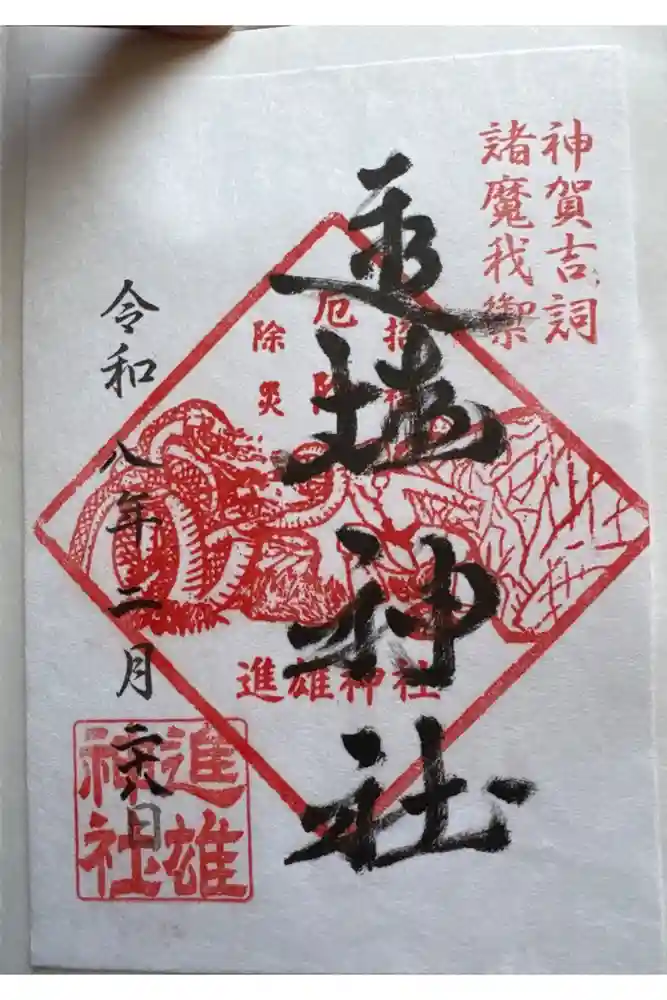 神賀吉詞
諸魔我禦
進雄神社
招
厄除
除災
進雄神社
令和八年二月二十八日
進雄
神社